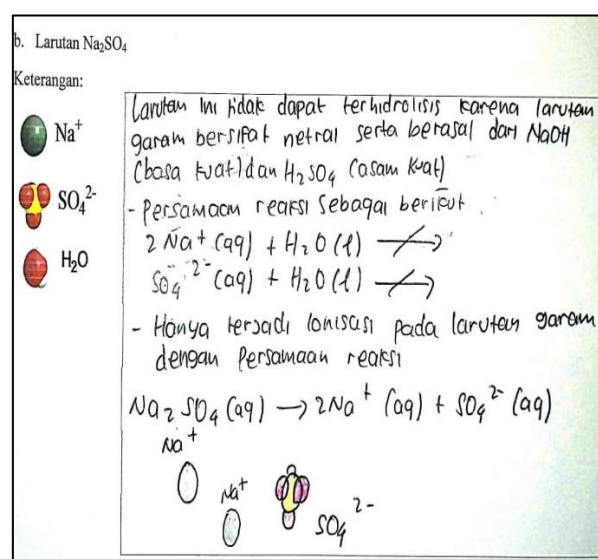 b. Larutan Na₂SO₄
Keterangan:
Na⁺
SO₄²⁻
H₂O
Larutan ini tidak dapat terhidrolisis karena larutan
garam bersifat netral serta berasal dari NaOH
(basa kuat) dan H₂SO₄ (asam kuat)
- Persamaan reaksi sebagai berikut
2 Na⁺ (aq) + H₂O (l) ↛
SO₄²⁻ (aq) + H₂O (l) ↛
- Hanya terjadi ionisasi pada larutan garam
dengan Persamaan reaksi
Na₂SO₄ (aq) → 2Na⁺ (aq) + SO₄²⁻ (aq)
Na⁺
Na⁺
SO₄²⁻